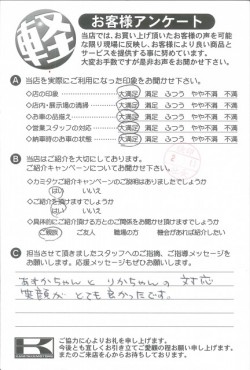 軽
お客様アンケート
当店では、お買い上げ頂いたお客様の声を可能
な限り現場に反映し、お客様により良い商品と
サービスを提供する事に努めています。
大変お手数ですが是非お声をお聞かせ下さい。
A 当店を実際にご利用になった印象をお聞かせ下さい。
◇店の印象 大満足 満足 ふつう やや不満 不満
◇店内・展示場の清掃 大満足 満足 ふつう やや不満 不満
◇お車の品揃え 大満足 満足 ふつう やや不満 不満
◇営業スタッフの対応 大満足 満足 ふつう やや不満 不満
◇納車時のお車の状態 大満足 満足 ふつう やや不満 不満
B 当店はご紹介を大切にしております。
ご紹介キャンペーンについてお聞かせ下さい。
◇カミタケご紹介キャンペーンのご説明はありましたでしょうか
はい いいえ
◇ご紹介を頂けますでしょうか
はい いいえ
◇具体的にご紹介頂ける方とのご関係をお聞かせ頂けますでしょうか
ご親戚 ご友人 職場の方 機会があれば紹介したい
C 担当させて頂きましたスタッフへのご指摘、ご指導メッセージを
お願いします。応援メッセージもぜひお願いします。
あすかちゃんと りかちゃんの 対応
笑顔が とても良かったです。
K
ご協力に心よりお礼を申し上げます。
今後とも宜しくお引き立てご愛顧の程お願い申し上げます。
またのご来店を心からお待ちしております。